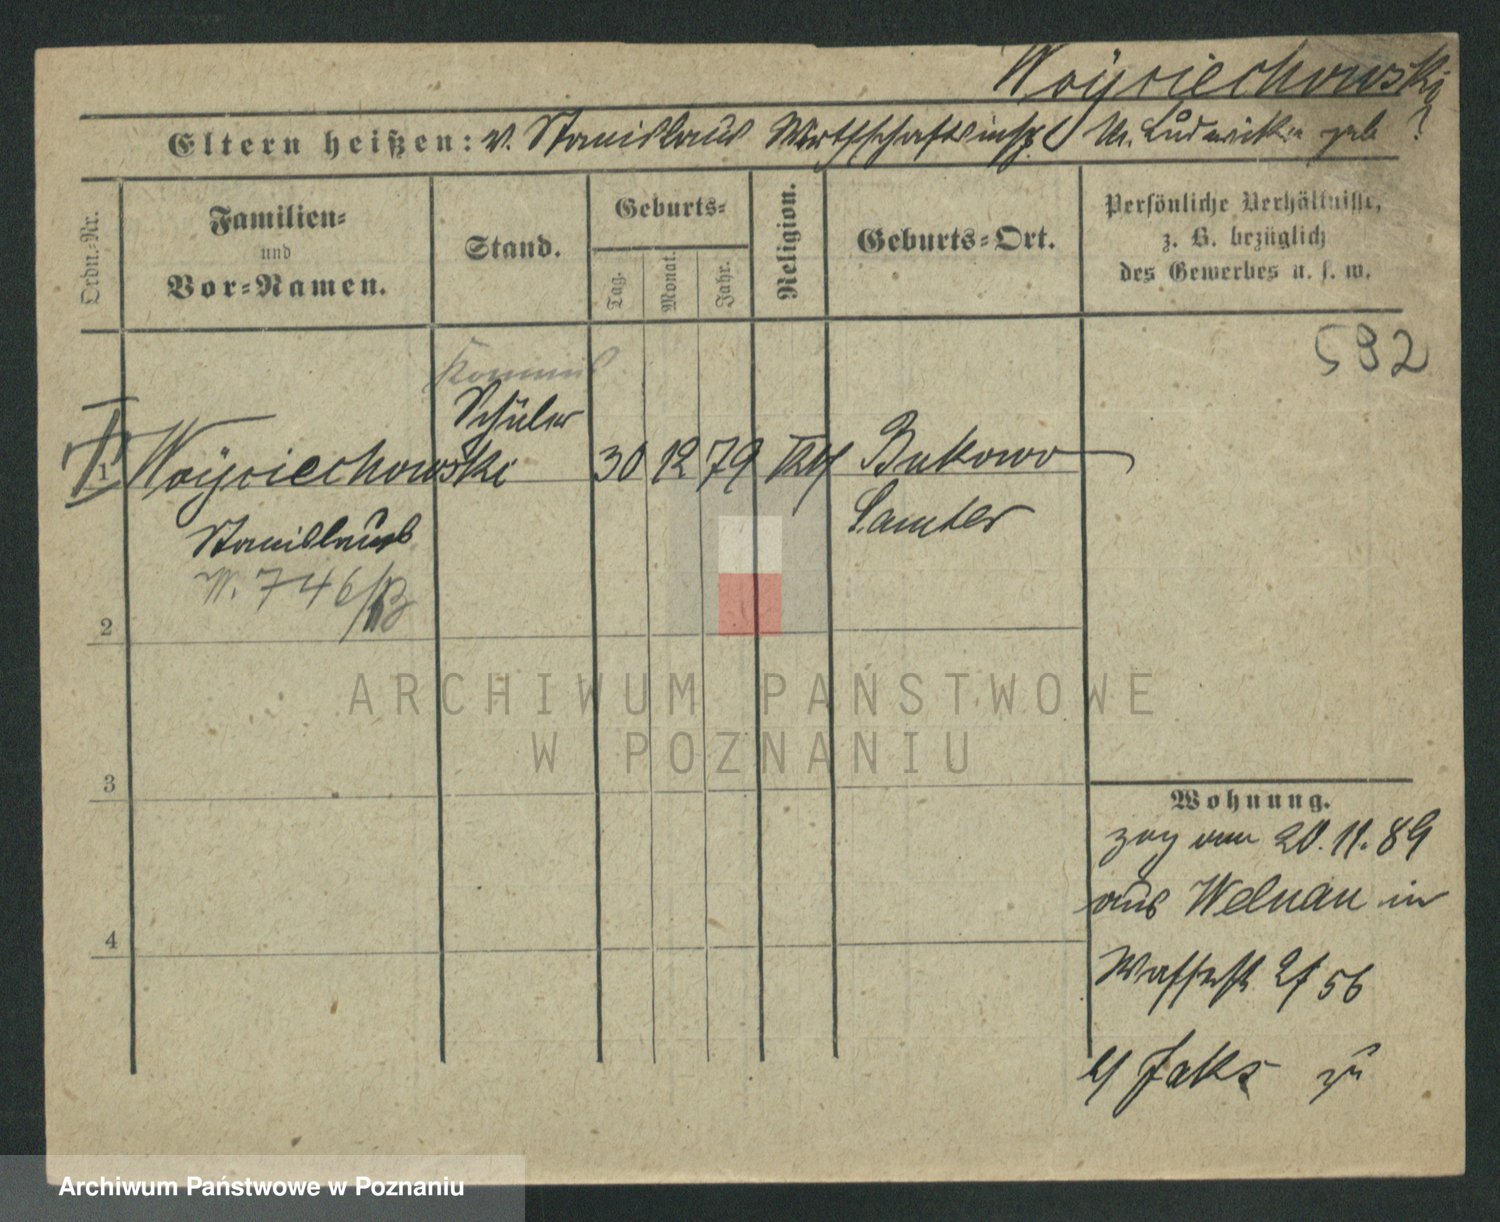 Woyciechowski
Eltern heißen: v. Stanislaus Wirthschaftsinsp. M. Ludwika geb ?
Ordn.-Nr.
Familien-
und
Vor-Namen.
Stand.
Geburts-
Tag.
Monat.
Jahr.
Religion.
Geburts-Ort.
Persönliche Verhältnisse,
z. B. bezüglich
des Gewerbes u. s. w.
592
Kommis
Schüler
1 Woyciechowski 30 12 79 Bukowo
Stanislaus Samter
W. 746/
2
ARCHIWUM PAŃSTWOWE
W POZNANIU
3
Wohnung.
zog am 20.11.89
aus Welnau in
Wasserstr 2/ 56
b/ Jaks zu
4
Archiwum Państwowe w Poznaniu